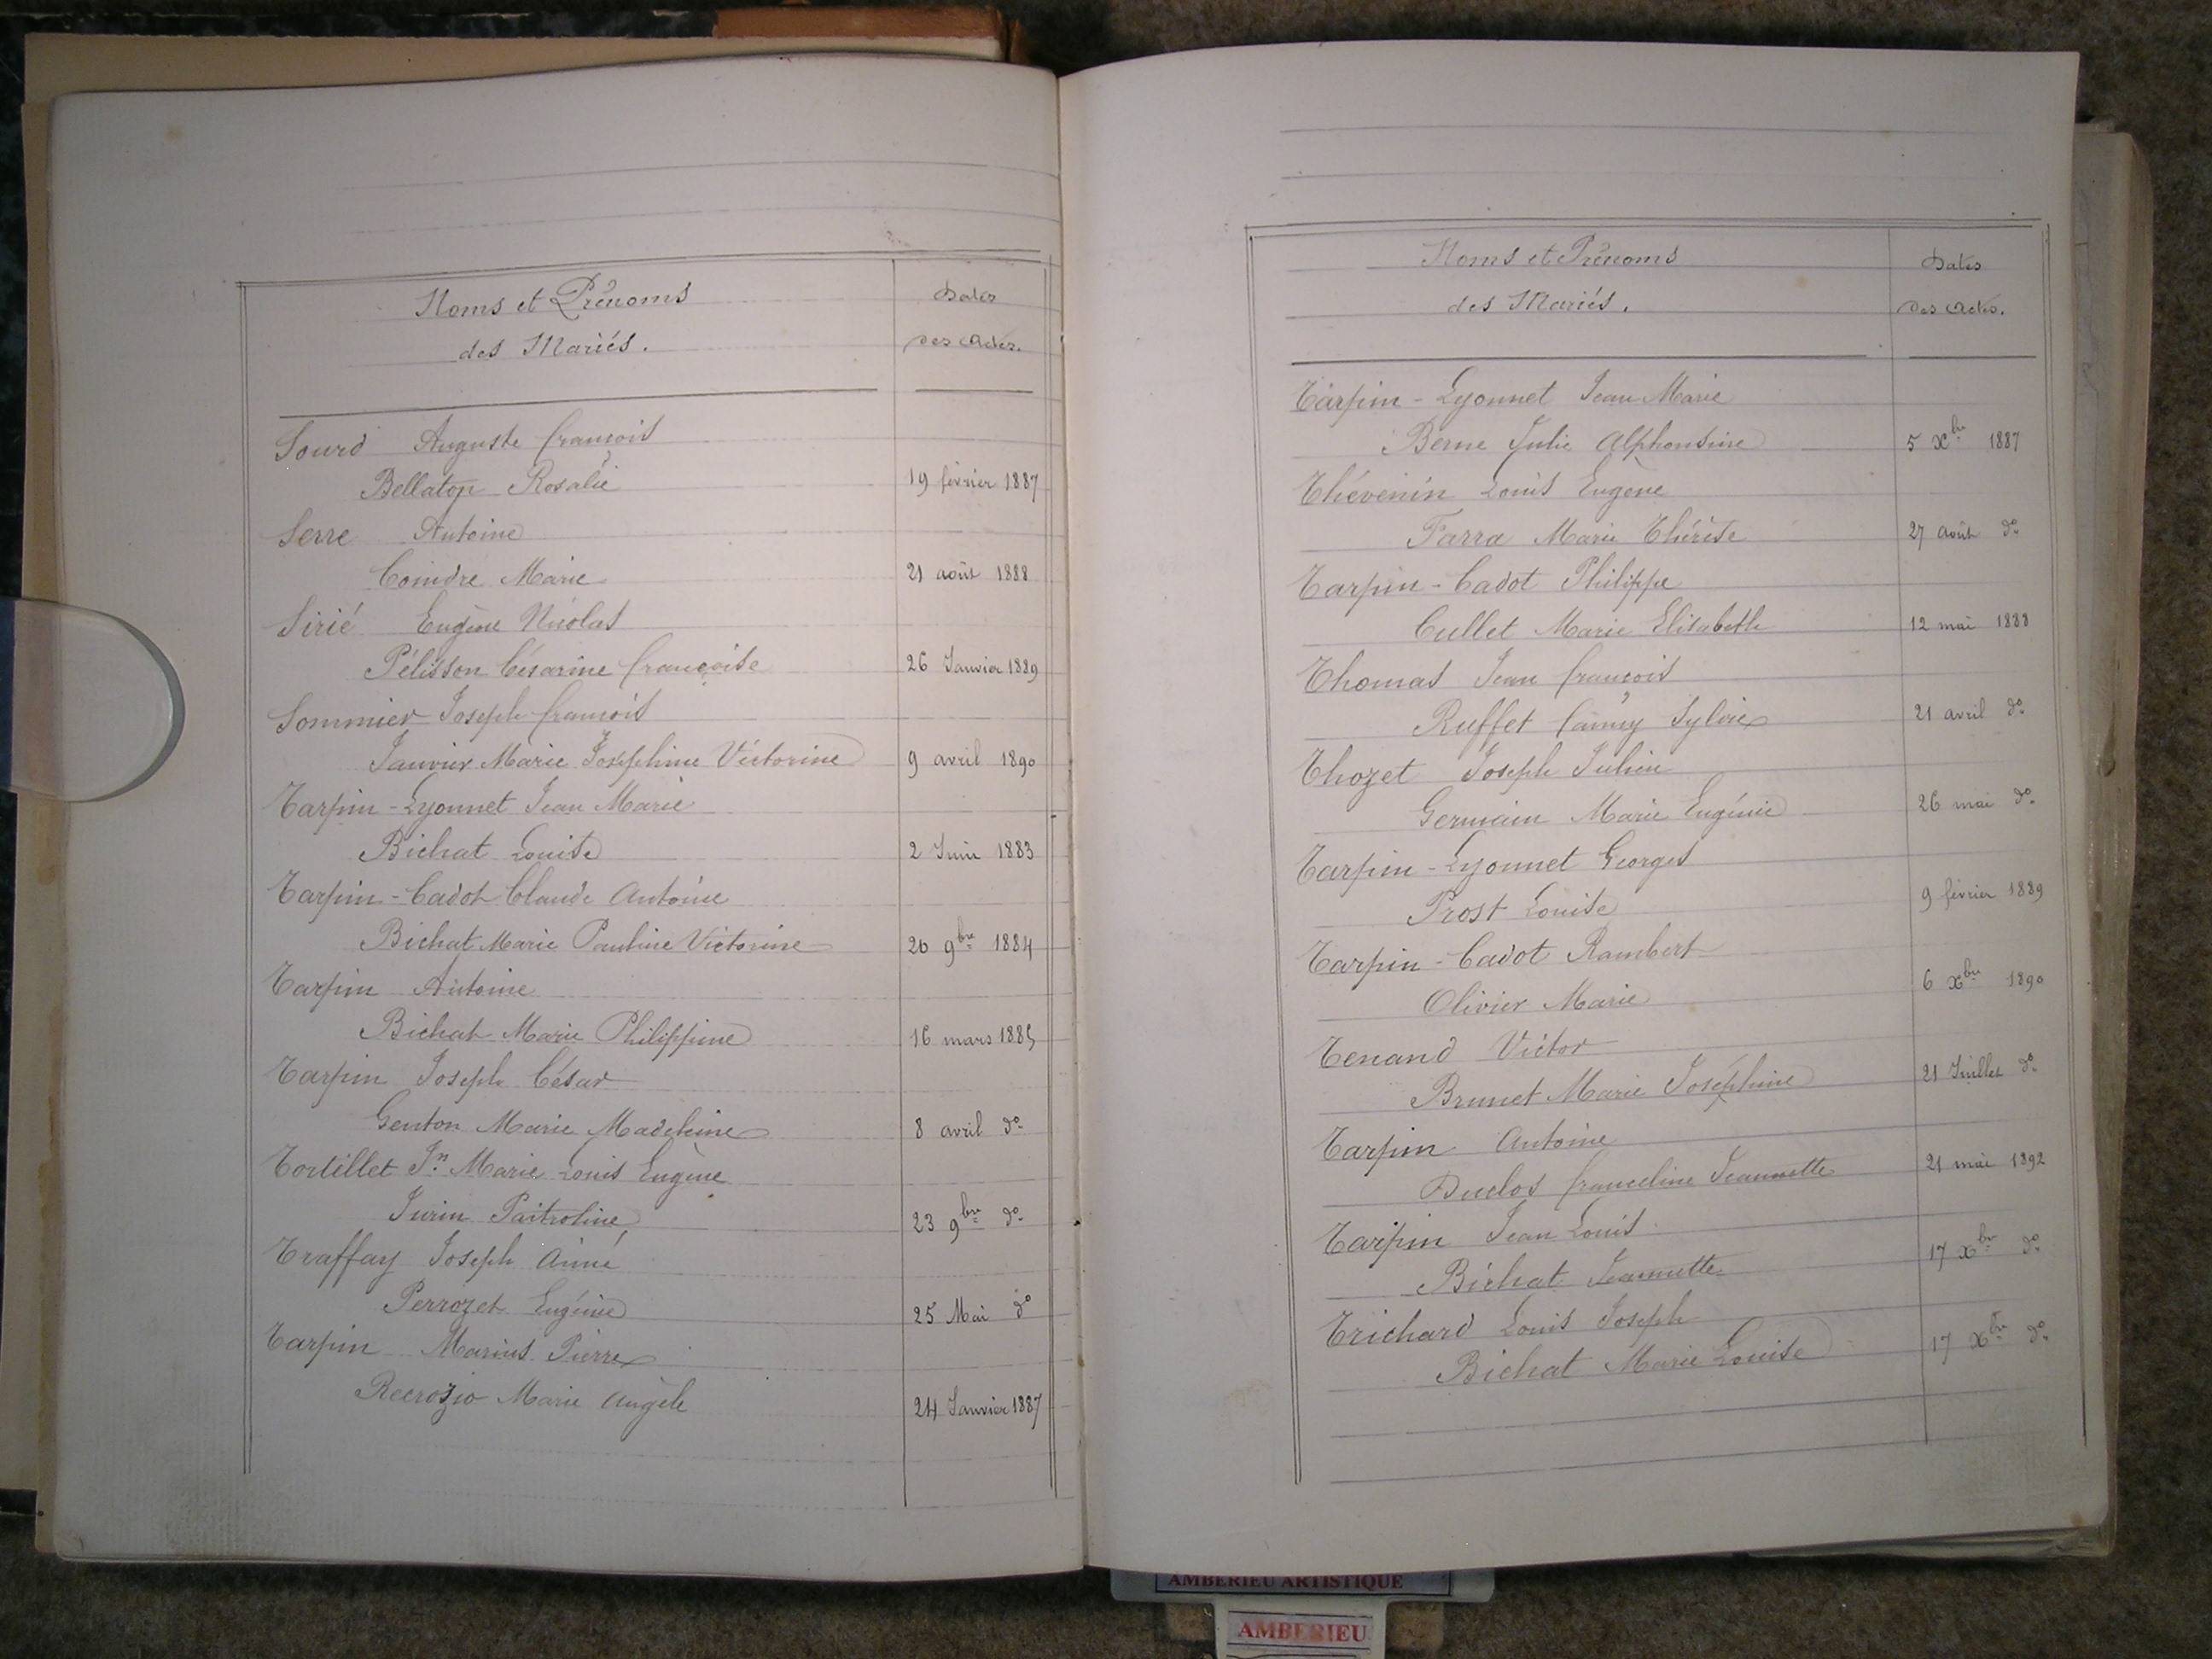 Noms et Prénoms
des Mariés.
Dates
des Actes.
Sourd Auguste françois
Bellaton Rosalie 19 février 1887
Serre Antoine
Coindre Marie 21 août 1888
Sirié Eugène Nicolas
Pélisson Césarine françoise 26 Janvier 1889
Sommier Joseph françois
Janvier Marie Joséphine Victorine 9 avril 1890
Tarpin-Lyonnet Jean Marie
Bichat Louise 2 Juin 1883
Tarpin-Cadot Claude Antoine
Bichat Marie Pauline Victorine 26 9bre 1884
Tarpin Antoine
Bichat Marie Philippine 16 mars 1885
Tarpin Joseph César
Genton Marie Madeleine 8 avril do
Tortillet Jn Marie Louis Eugène
Jurin Paitroline 23 9bre do
Traffay Joseph Aimé
Perrozet Eugénie 25 Mai do
Tarpin Marius Pierre
Recrozio Marie Angèle 24 Janvier 1887
Noms et Prénoms
des Mariés.
Dates
des Actes.
Tarpin-Lyonnet Jean Marie
Berne Julie Alphonsine 5 Xbre 1887
Thévenin Louis Eugène
Farra Marie Thérèse 27 août do
Tarpin-Cadot Philippe
Cullet Marie Elisabeth 12 mai 1888
Thomas Jean françois
Ruffet fanny Sylvie 21 avril do
Thozet Joseph Julien
Germain Marie Eugénie 26 mai do
Tarpin-Lyonnet Georges
Prost Louise 9 février 1889
Tarpin-Cadot Rambert
Olivier Marie 6 Xbre 1890
Tenand Victor
Brunet Marie Joséphine 21 Juillet do
Tarpin Antoine
Duclos franceline Jeannette 21 mai 1892
Tarpin Jean Louis
Bichat Jeannette 17 Xbre do
Trichard Louis Joseph
Bichat Marie Louise 17 Xbre do
AMBERIEU ARTISTIQUE
AMBERIEU